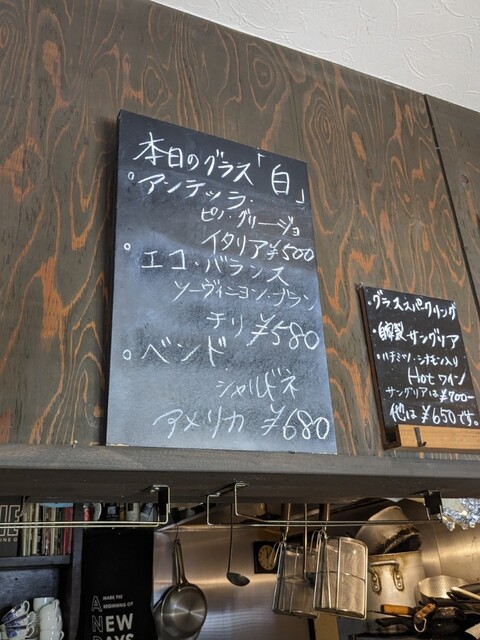 本日のグラス「白」
°アンテッラ・
ピノ・グリージョ
イタリア ¥500
°エコ・バランス
ソーヴィニヨン・ブラン
チリ ¥580
°ベンド・
シャルドネ
アメリカ ¥680
・グラススパークリング
・自家製サングリア
・ハチミツ・シナモン入り
Hot ワイン
サングリアは¥700ー
他は¥650です。
A MARK THE
BEGINNING OF
NEW
DAYS